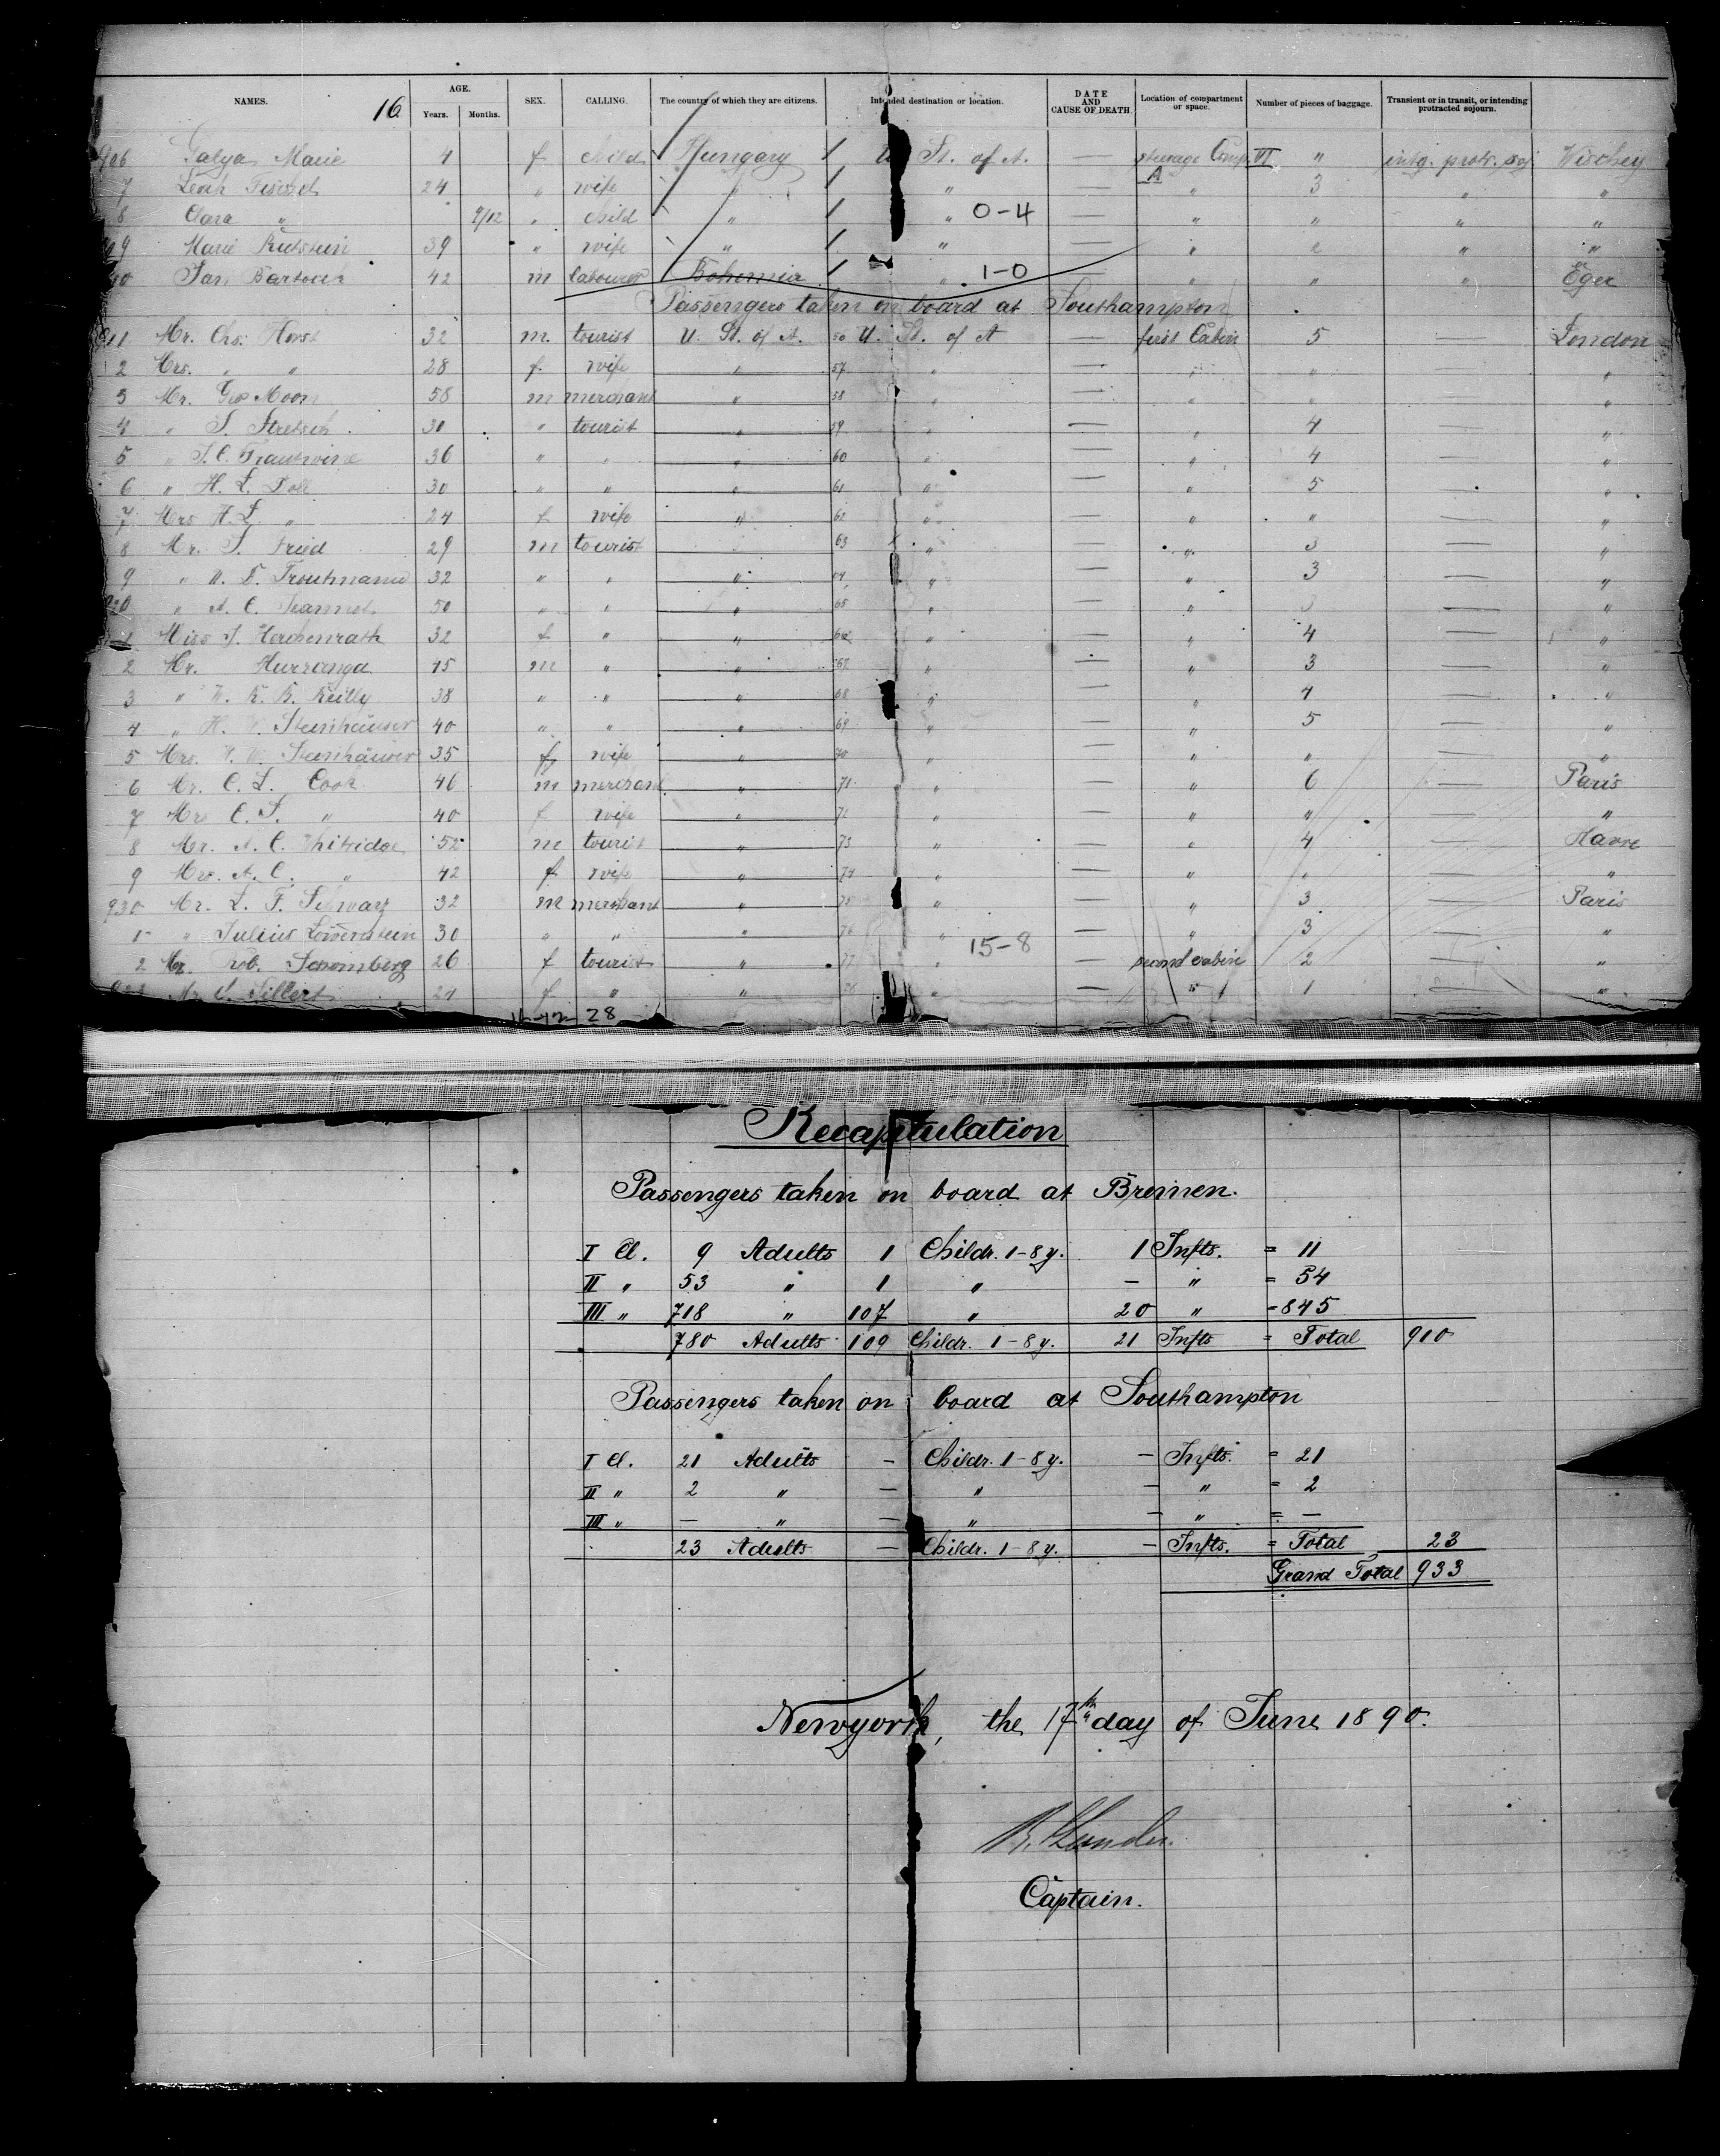 NAMES. 16 AGE. Years. Months. SEX. CALLING. The country of which they are citizens. Intended destination or location. DATE AND CAUSE OF DEATH. Location of compartment or space. Number of pieces of baggage. Transient or in transit, or intending protracted sojourn.
906 Galya Marie 4 f child Hungary 1 U St. of A. — steerage Comp. VI " intg. protr. soj
7 Leah 24 " wife " 1 " — A " 3 " "
8 Clara " 9/12 " child " 1 " 0-4 — " " " "
9 Marie 39 " wife " 1 " — " 2 " "
10 Jan 42 m labourer Bohemia 1 " 1-0 — " " " Eger
Passengers taken on board at Southampton
911 Mr. Chs. Horst 32 m. tourist U. St. of A. 56 U. St. of A — first Cabin 5 — London
2 Mrs. " " 28 f. wife " 57 " — " " — "
3 Mr. Geo Moon 58 m merchant " 58 " — " " — "
4 " J. Stretsch 30 " tourist " 59 " — " 4 — "
5 " J. C. Trautwine 36 " " " 60 " — " 4 — "
6 " H. L. 30 " " " 61 " — " 5 — "
7 Mrs H. L. " 24 f wife " 62 " — " " — "
8 Mr. J. Fried 29 m tourist 63 " — " 3 — "
9 " Troutmann 32 " " " 64 " — " 3 — "
920 " A. C. Jeannot 50 " " " 65 " — " 3 — "
1 Miss J. Herchenrath 32 f " " 66 " — " 4 — "
2 Mr. 45 m " " 67 " — " 3 — "
3 " Reilly 38 " " " 68 " — " 4 — "
4 " H. W. Steinhäuser 40 " " " 69 " — " 5 — "
5 Mrs. H. W. Steinhäuser 35 f wife " 70 " — " " — "
6 Mr. C. L. Cook 46 m merchant " 71 " — " 6 — Paris
7 Mrs C. L. " 40 f wife " 72 " — " " — "
8 Mr. A. C. Whitridge 52 m tourist " 73 " — " 4 — Havre
9 Mrs. A. C. " 42 f wife " 74 " — " " — "
930 Mr. L. F. 32 m merchant " 75 " — " 3 — Paris
1 " Julius Löwenstein 30 " " " 76 " — " 3 — "
2 Mr. Rob. Schomberg 26 f tourist " 77 " 15-8 — second cabin 2 — "
933 Mr 24 f " " 78 " — " 1 — "
28
Recapitulation
Passengers taken on board at Bremen.
I Cl. 9 Adults 1 Childr. 1-8 y. 1 Infts. = 11
II " 53 " 1 " — " = 54
III " 718 " 107 " 20 " = 845
780 Adults 109 Childr. 1-8 y. 21 Infts = Total 910
Passengers taken on board at Southampton
I Cl. 21 Adults — Childr. 1-8 y. — Infts. = 21
II " 2 " — " — " = 2
III " — " — " — " = —
23 Adults — Childr. 1-8 y. — Infts. = Total 23
Grand Total 933
Newyork, the 17th day of June 1890.
Captain.